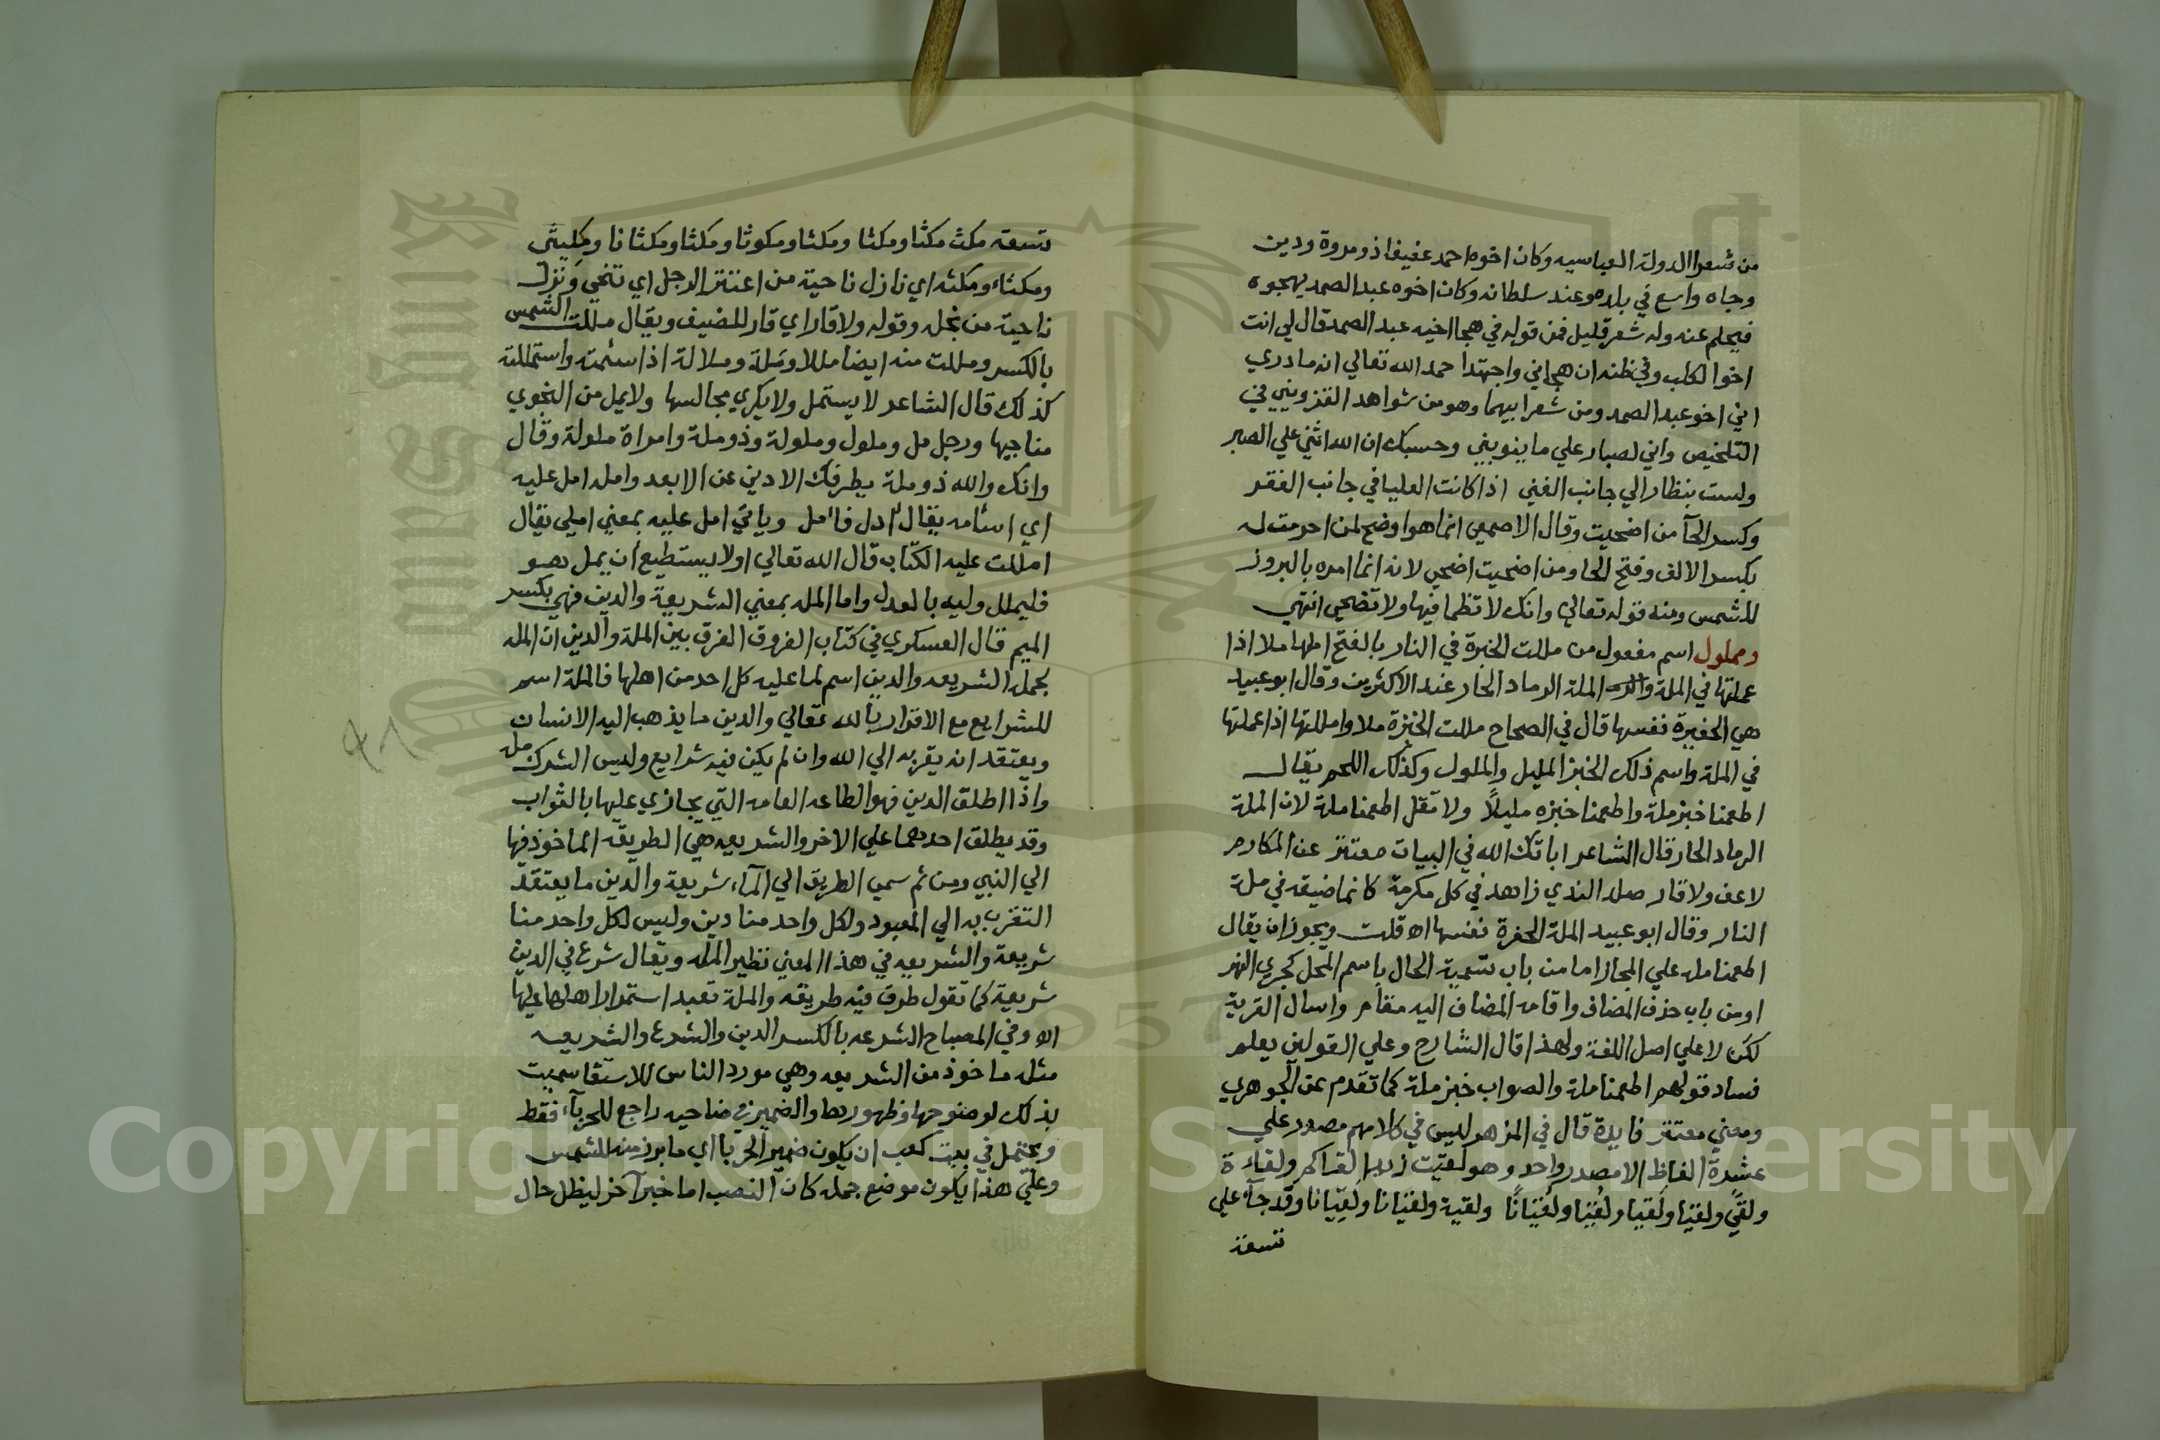 من شعرا الدولة العباسيه وكان اخوه احمد عفيفا ذو مروة ودين
وجاه واسع في بلده وعند سلطانه وكان اخوه عبد الصمد يهجوه
فيحلم عنه وله شعر قليل فمن قوله في هجا اخيه عبد الصمد قال لي انت
اخوا لكلب وفي ظنه ان هجاني واجتهدا حمد الله تعالي انه ما دري
اني اخو عبد الصمد ومن شعر ابيهما وهو من شواهد القزويني في
التلخيص واني لصبار علي ما ينوبني وحسبك ان الله اثني علي الصبر
ولست بنظار الي جانب الغني اذا كانت العليا في جانب الفقر
وكسر الحآ من اضحيت وقال الاصمعي انما هو اوضح لمن احرمت له
بكسر الالف وفتح الحا ومن اضحيت اضحي لانه انما امره بالبروز
للشمس ومنه قوله تعالي وانك لا تظما فيها ولا تضحي انتهي
ومملول اسم مفعول من مللت الخبزة في النار بالفتح املها ملا اذا
عملتها في الملة الملة الرماد الحار عند الاكثرين وقال ابو عبيد
هي الحفيرة نفسها قال في الصحاح مللت الخبزة ملا وامللتها اذا عملتها
في الملة واسم ذلك الخبز المليل والملول وكذلك اللحم يقال
اطعمنا خبز ملة واطعمنا خبزه مليلاً ولا تقل اطعمنا ملة لان الملة
الرماد الحار قال الشاعر اباتك الله في ابيات معتنز عن المكارم
لا عف ولا قار صلد الندي زاهد في كل مكرمة كانما ضيفه في ملة
النار وقال ابو عبيد الملة الحفرة نفسها اه قلت ويجوز ان يقال
اطعمنا مله علي المجاز اما من باب تسمية الحال باسم المحل كجري النهر
او من باب حذف المضاف واقامه المضاف اليه مقام واسال القرية
لكن لا علي اصل اللغة ولهذا قال الشارح وعلي القولين يعلم
فساد قولهم اطعمنا ملة والصواب خبز ملة كما تقدم عن الجوهري
ومعني معتنز فايدة قال في المزهر ليس في كلامهم مصدر علي
عشرة الفاظ الا مصدر واحد وهو لقيت زيدا لقا ولقاءة
ولقيً ولقيا ولقيا ولقيا ولقيانًا ولقية ولقيانا ولقيانا وقد جآء علي
تسعة
تسعة مكث مكثا ومكثا ومكثا ومكوثا ومكثا ومكثانا ومكيثى
ومكثاء ومكثه اي نازل ناحية من اعتنز الرجل اي تنحي ونزل
ناحية من بخله وقوله ولا قار اي قار للضيف ويقال مللت الشمس
بالكسر ومللت منه ايضا مللا وملة وملالة اذا سئمته واستمللته
كذلك قال الشاعر لا يستمل ولا يكري مجالسها ولا يمل من النجوي
مناجيها ورجل مل وملول وملولة وذو ملة وامراة ملولة وقال
وانك والله ذو ملة يطرفك الادين عن الابعد وامله امل عليه
اي اسئامه يقال ادل فأمل وياتي امل عليه بمعني املي يقال
امللت عليه الكتاب قال الله تعالي او لا يستطيع ان يمل هو
فليملل وليه بالعدل واما المله بمعني الشريعة والدين فهي بكسر
الميم قال العسكري في كتاب الفروق الفرق بين الملة والدين ان المله
بجملة الشريعه والدين اسم لما عليه كل احد من اهلها فالملة اسم
للشرايع مع الاقرار بالله تعالي والدين ما يذهب اليه الانسان
ويعتقد انه يقربه الي الله وان لم يكن فيه شرايع وليس الشرك مله
واذا اطلق الدين فهو الطاعه العامه التي يجازي عليها بالثواب
وقد يطلق احدهما علي الاخر والشريعه هي الطريقه الماخوذ فيها
الي النبي ومن ثم سمي الطريق الي المآء شريعة والدين ما يعتقد
التقرب به الي المعبود ولكل واحد منا دين وليس لكل واحد منا
شريعة والشريعه في هذا المعني نظير المله ويقال شرع في الدين
شريعة كما تقول طرق فيه طريقه والملة تعبد استمرار اهلها عليها
اه وفي المصباح الشرعه بالكسر الدين والشرع والشريعه
مثله ماخوذ من الشريعه وهي مورد الناس للاستقا سميت
بذلك لوضوحها وظهورها والضمير في ضاحيه راجع للحربآء فقط
ويحتمل في بيت كعب ان يكون ضمير الحربا اي ما برز منه للشمس
وعلي هذا يكون موضع جمله كان النصب اما خبرآ خر ليظل حال
Copyright © King Saud University